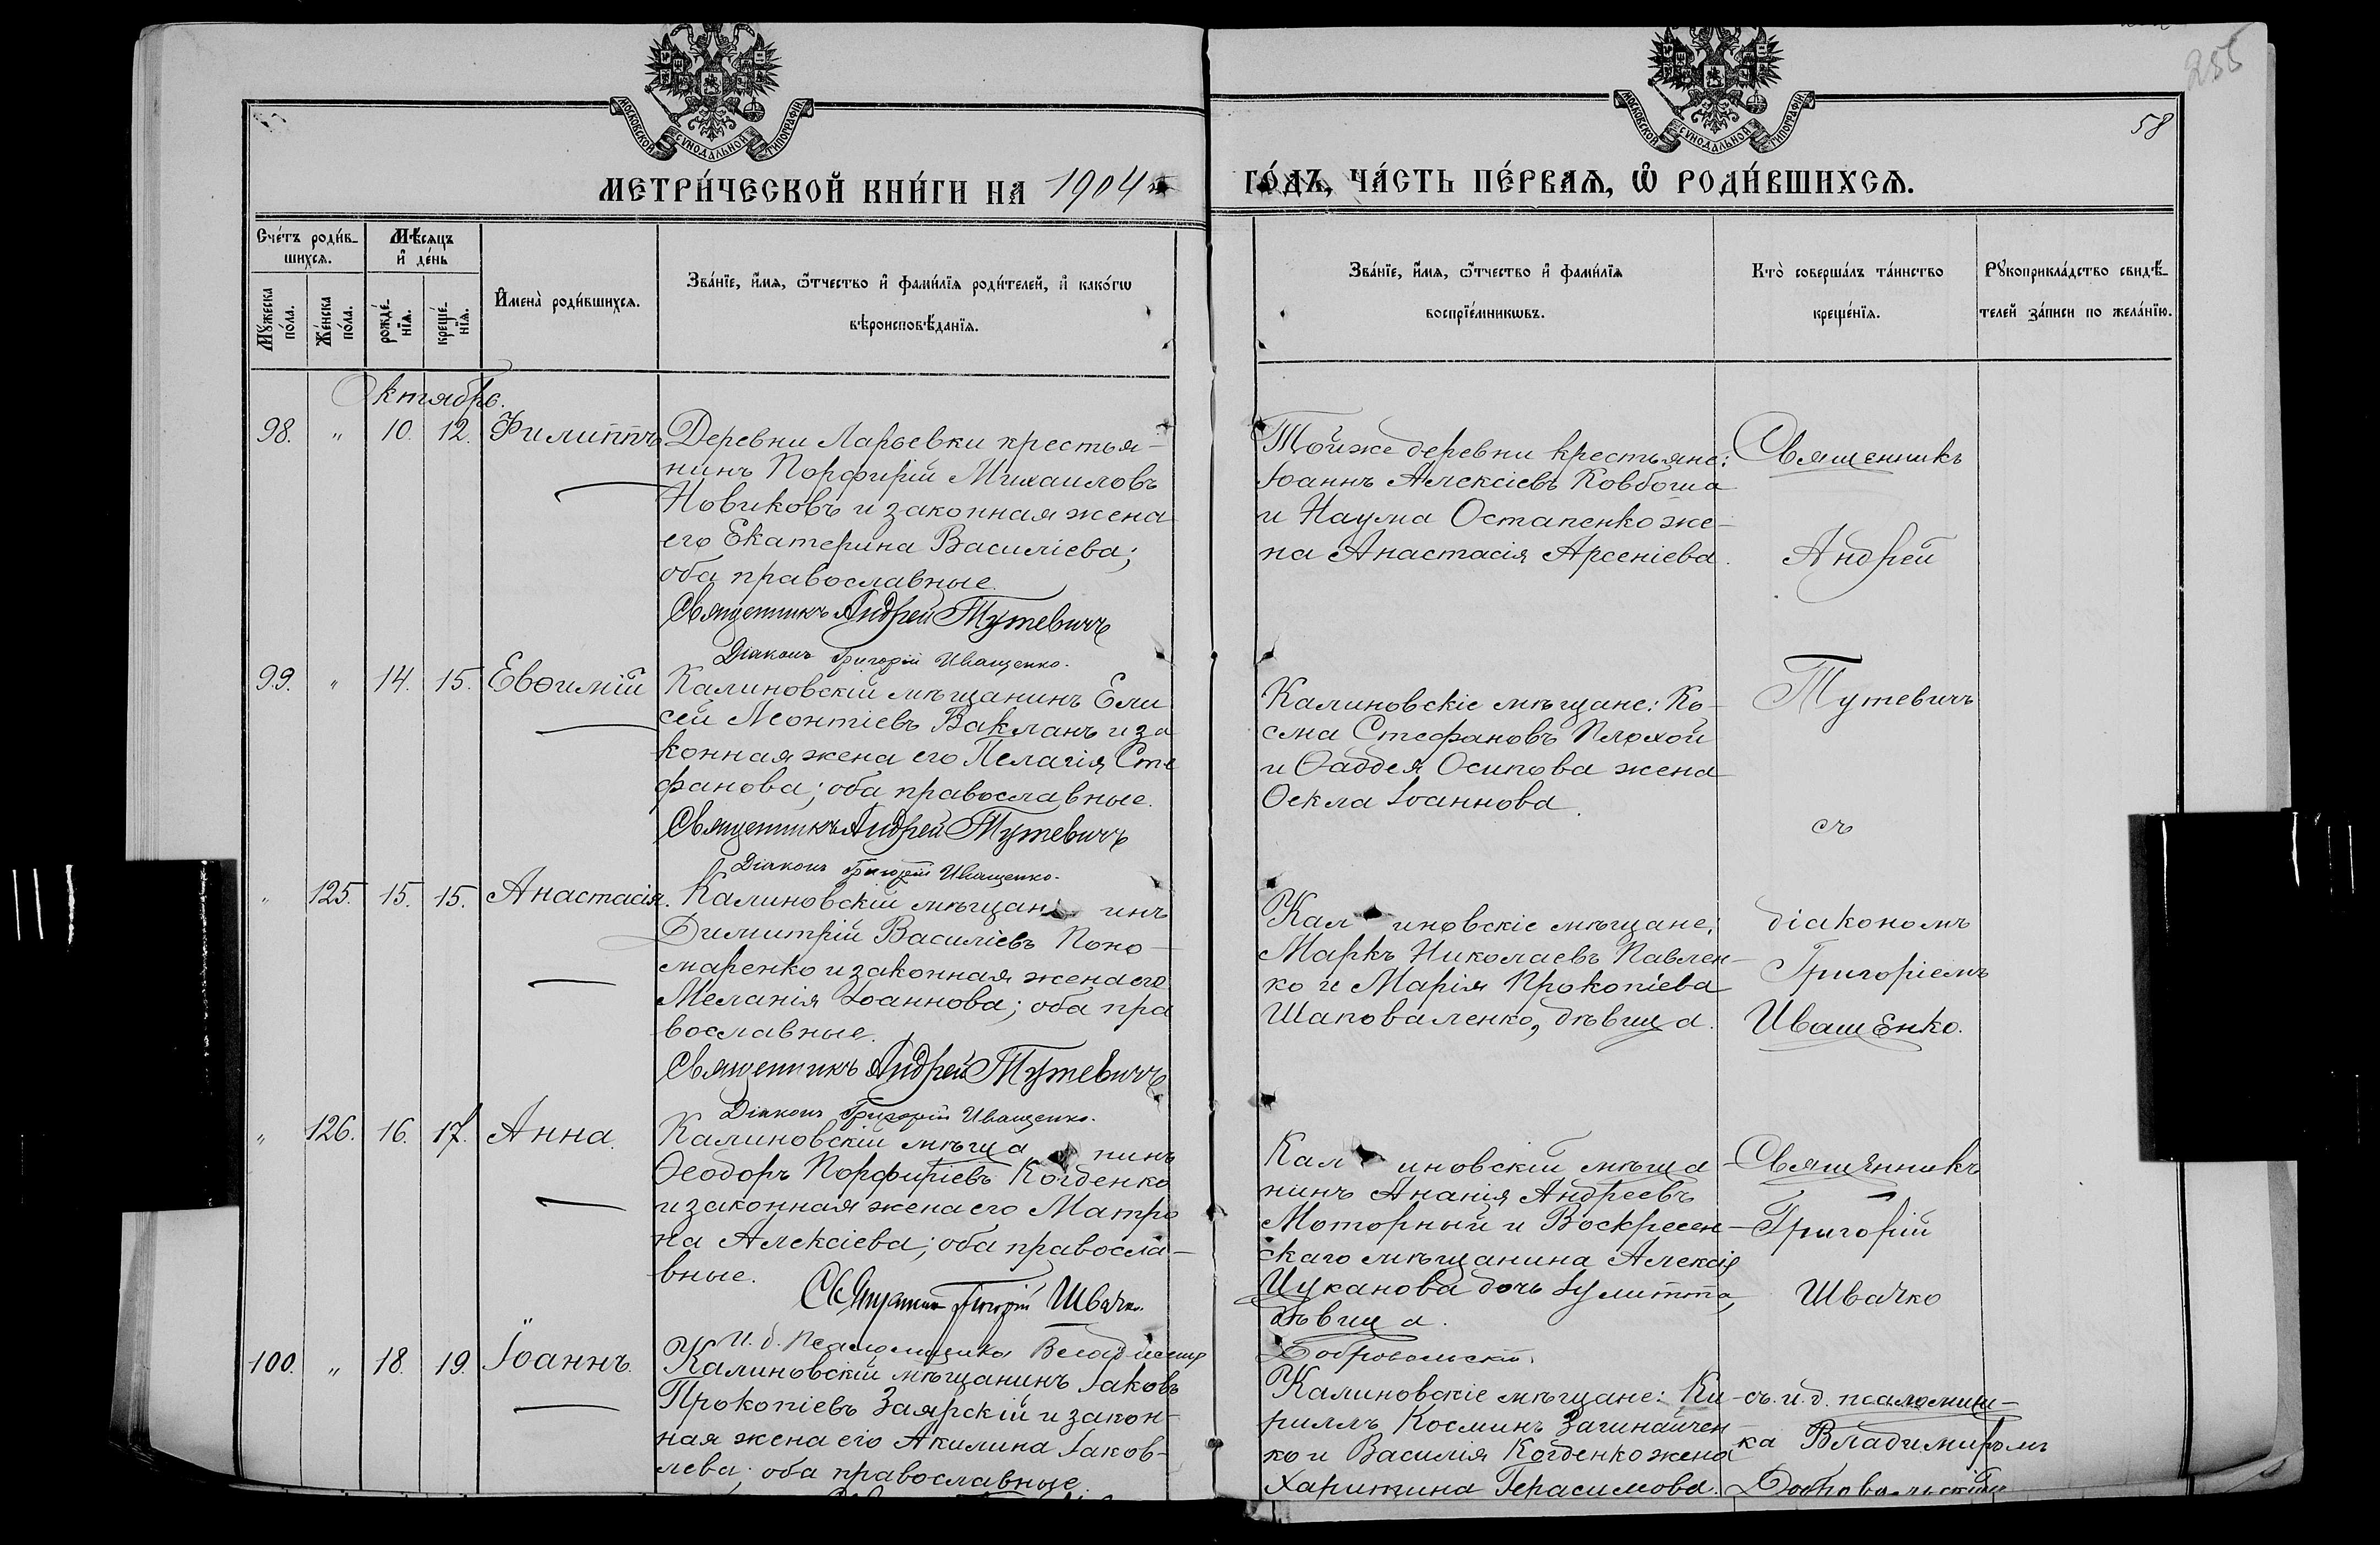 255
58
МОСКОВСКОЙ СѴНОДАЛЬНОЙ ТИПОГРАФІИ
МОСКОВСКОЙ СѴНОДАЛЬНОЙ ТИПОГРАФІИ
МЕТРИ́ЧЕСКОЙ КНИ́ГИ НА 1904
ГО́ДЪ, ЧА́СТЬ ПЕ́РВАѦ, Ѡ҆ РОДИ́ВШИХСѦ.
Сче́тъ роди́в-
шихсѧ.
Мꙋ́жеска по́ла.
Же́нска по́ла.
Мѣ́сѧцъ
и҆ де́нь
рожде́-нїѧ.
креще́-нїѧ.
И҆мена̀ роди́вшихсѧ.
Зва́нїе, и҆́мѧ, ѻ҆́тчество и҆ фами́лїѧ роди́телей, и҆ како́гѡ
вѣроисповѣ́данїѧ.
Зва́нїе, и҆́мѧ, ѻ҆́тчество и҆ фами́лїѧ
воспрїе́мникѡвъ.
Кто̀ соверша́лъ та́инство
креще́нїѧ.
Рꙋкоприкла́дство свидѣ́-
телей за́писи по жела́нїю.
Октябрь.
98. " 10. 12. Филиппъ
Деревни Ларьевки крестья-
нинъ Порфирій Михаиловъ
Новиковъ и законная жена
его Екатерина Василіева;
оба православные.
Священникъ Андрей Тутевичъ
Діаконъ Григорій Иващенко.
Тойже деревни крестьяне:
Іоаннъ Алексіевъ Ковбоша
и Наума Остапенко же-
на Анастасія Арсеніева.
Священникъ
Андрей
Тутевичъ
съ
діакономъ
Григоріемъ
Иващенко.
99. " 14. 15. Евѳимій
Калиновскій мѣщанинъ Ели
сей Леонтіевъ Вакланъ и за
конная жена его Пелагія Сте
фанова; оба православные.
Священникъ Андрей Тутевичъ
Діаконъ Григорій Иващенко.
Калиновскіе мѣщане: Ко-
сма Стефановъ Плохой
и Ѳаддея Осипова жена
Ѳекла Іоаннова.
" 125. 15. 15. Анастасія.
Калиновскій мѣщан инъ
Димитрій Василіевъ Поно-
маренко и законная жена его
Меланія Іоаннова; оба пра
вославные.
Священникъ Андрей Тутевичъ
Діаконъ Григорій Иващенко.
Кал иновскіе мѣщане:
Маркъ Николаевъ Павлен-
ко и Марія Прокопіева
Шаповаленко, дѣвица.
" 126. 16. 17. Анна.
Калиновскій мѣща нинъ
Ѳеодоръ Порфиріевъ Когденко
и законная жена его Матро
на Алексіева; оба правосла-
вные.
Священникъ Григорій Швачко.
И. д. псаломщика Владиміръ
Кал иновскій мѣща-
нинъ Ананія Андреевъ
Моторный и Воскресен-
скаго мѣщанина Алексія
Цуканова дочь Іулитта,
дѣвица.
Добровольскій.
Священникъ
Григорій
Швачко
съ и. д. псаломщи-
ка Владиміромъ
Добровольскимъ
100. " 18. 19. Іоаннъ.
Калиновскій мѣщанинъ Іаковъ
Прокопіевъ Заярскій и закон-
ная жена его Акилина Іаков-
лева; оба православные.
Калиновскіе мѣщане: Ки-
риллъ Косминъ Загинайчен
ко и Василія Когденко жена
Харитина Герасимова.